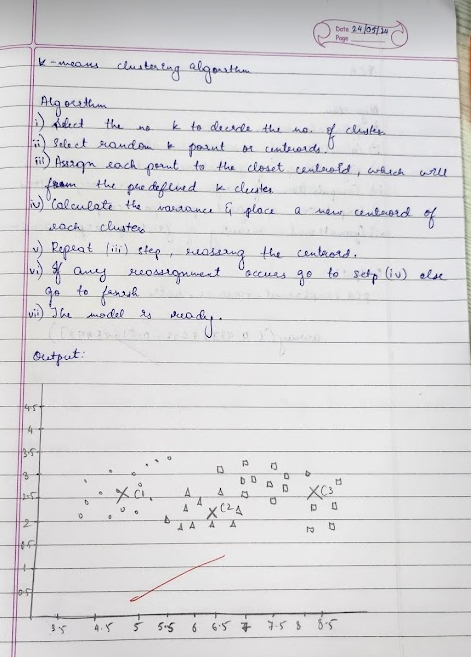 Date 24/05/24
Page
K-means clustering algorithm
Algorithm
i) Select the no. K to decide the no. of cluster
ii) Select random k point or centroids.
iii) Assign each point to the closet centroid, which will
from the predefined k cluster
iv) Calculate the variance & place a new centroid of
each cluster
v) Repeat (iii) step, reassing the centroid.
vi) If any reassignment occurs go to setp (iv) else
go to finish
vii) The model is ready.
Output:
4.5
4
3.5
3
2.5
2
1.5
1
0.5
C1
C2
C3
3.5 4.5 5 5.5 6 6.5 7 7.5 8 8.5